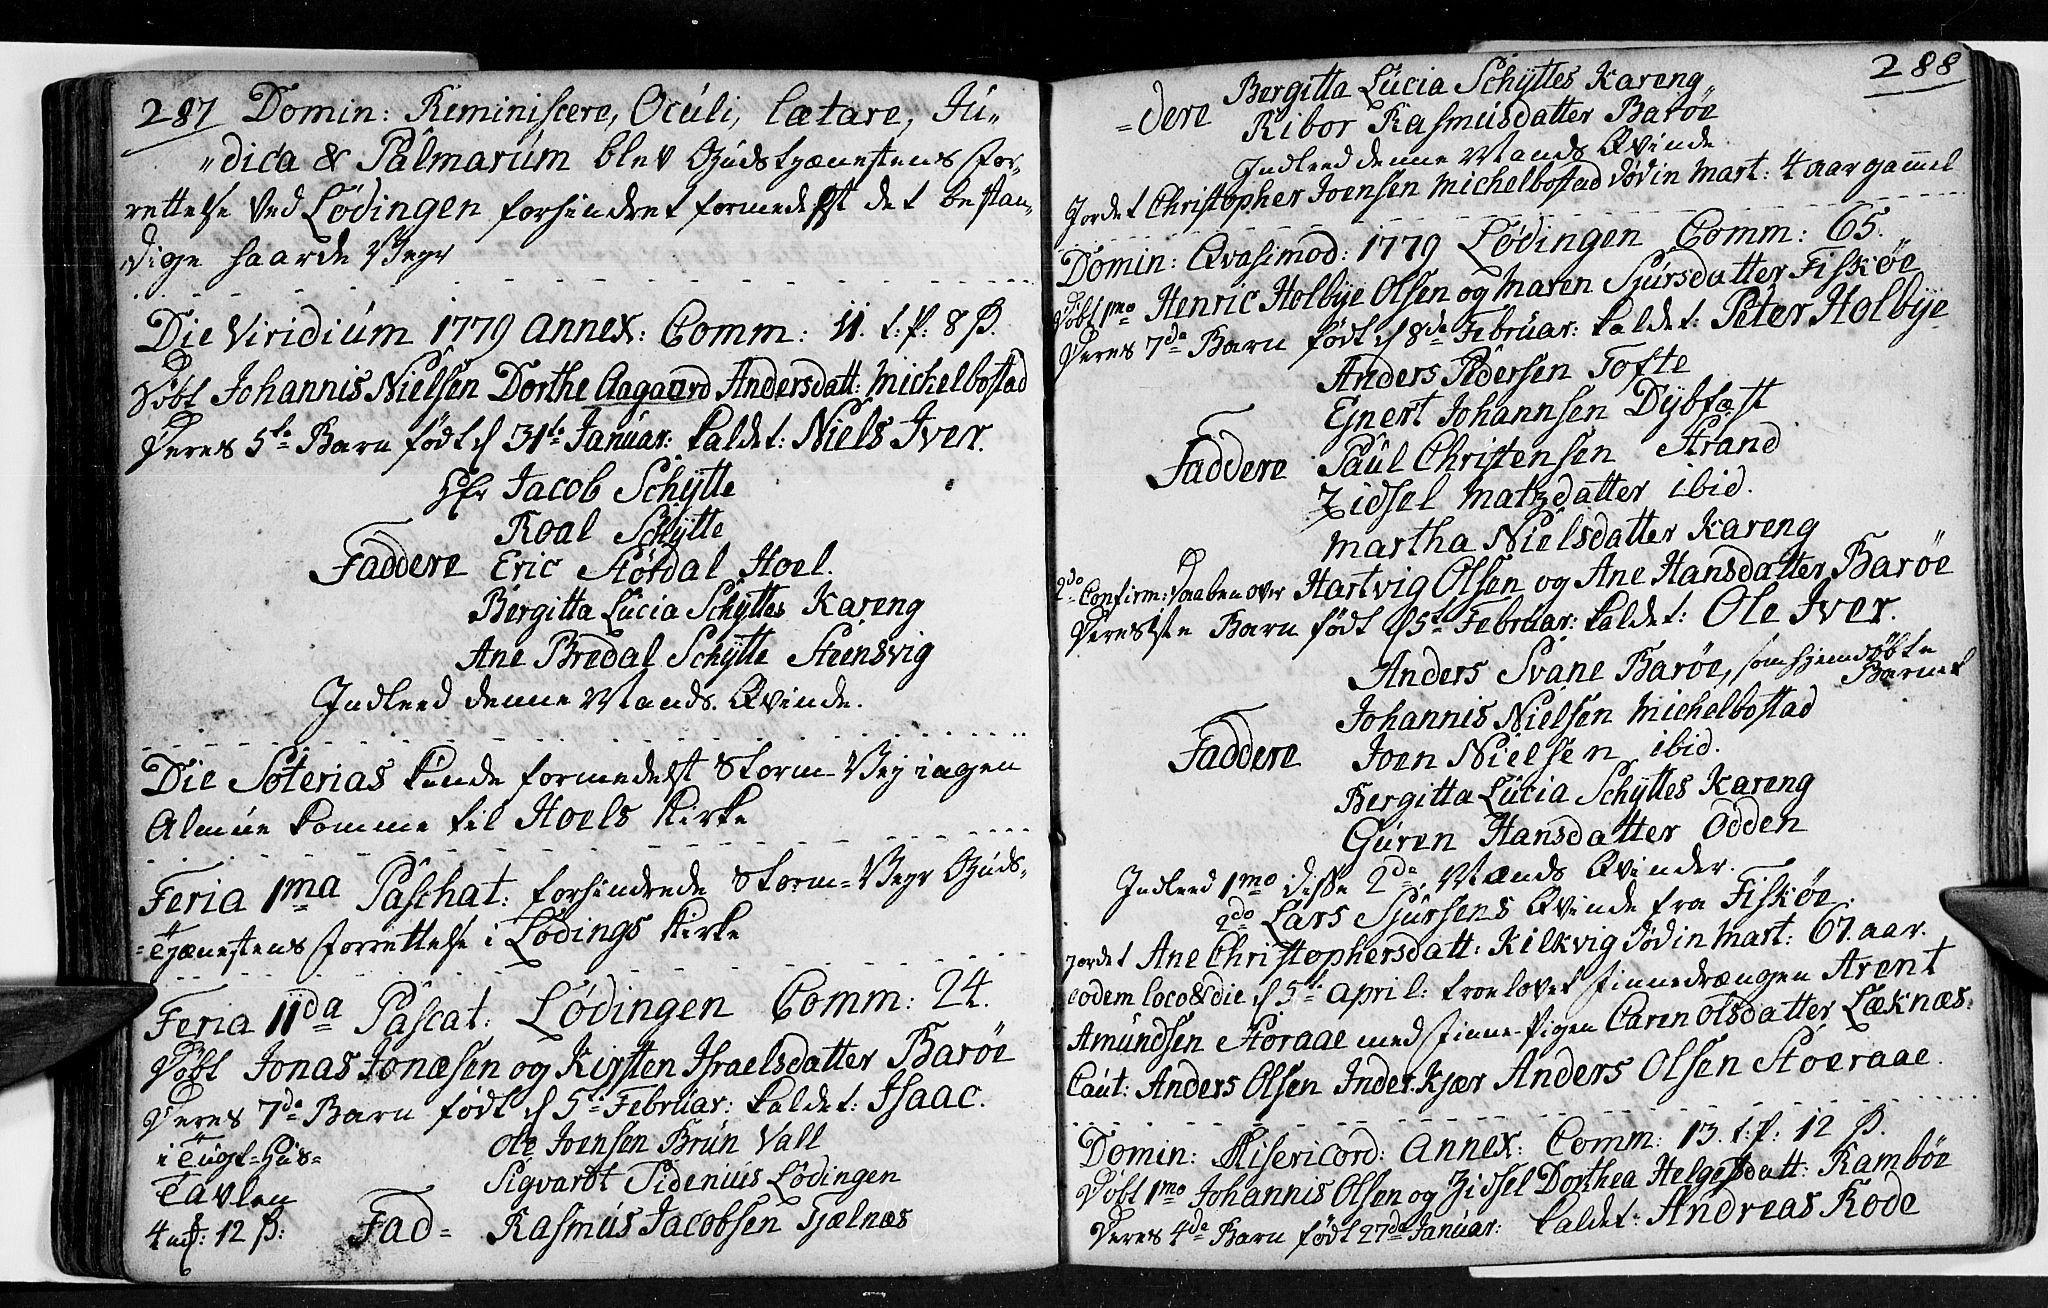 287 Domin: Reminiscere, Oculi, Lætare, Ju„
„dica & Palmarum blev Gudstienestens for„
rettelse ved Lødingen forhindret formedelst det bestan„
dige haarde Veyr
Die Viridium 1779 Annex: Comm: 11. t: f: 8 ß.
Døbt Johannis Nielsen Dorthe Aagaard Andersdatt: Michelbostad
Deres 5te Barn født d 31te Januar: kaldet: Niels Iver.
Hr Jacob Schytte
Roal Schytte
Faddere Eric Stördal Hoel.
Bergitta Lucia Schyttes Kareng
Ane Bredal Schytte Steensvig
Indleed denne Mands Qvinde.
Die Soterias kunde formedelst Storm-Vejr ingen
Almue komme til Hoels Kirke
Feria 1ma Paschat: forhindrede Storm-Veyr Guds„
=Tjænestens forrettelse i Lødings Kirke
Feria IIda Pascat: Lødingen Comm: 24.
Døbt Jonas Jonæsen og Kirsten Israelsdatter Barøe
Deres 7de Barn født d 5te Februar: kaldet: Isaac.
i Tugt-Huus-
Tavlen
4 mk: 12 ß:
Ole Joensen Brun Vall
Sigvardt Sidenius Lødingen
Fad= Rasmus Jacobsen Tjælnæs
288
=dere Bergitta Lucia Schyttes Kareng„
Ribor Rasmusdatter Barøe
Indleed denne Mands Qvinde.
Jordet Christopher Joensen Michelbostad død in Mart: 4 aar gammel
Domin: Qvasimod: 1779 Lödingen Comm: 65.
Døbt 1mo Henric Holbye Olsen og Maren Sjursdatter Fiskøe
Deres 7de Barn født d 8de Februar: kaldet: Peter Holbye
Anders Pedersen Tofte
Ejnert Johannsen Dybfæst
Faddere Paul Christensen Strand
Zidsel Matzdatter ibid.
Martha Nielsdatter Kareng
2do Confirm: Daaben over Hartvig Olsen og Ane Hansdatter Barøe
Deres 1ste Barn født d 5te Februar: kaldet: Ole Iver.
Anders Svane Barøe, som hjemdøbte
Barnet
Johannis Nielsen Michelbostad
Faddere Joen Nielsen ibid.
Bergitta Lucia Schyttes Kareng
Guren Hansdatter Odden
Indleed 1mo disse 2de Mænds Qvinder.
2do Lars Sjursens Qvinde fra Fiskøe.
Jordet Ane Christophersdatt: Kilkvig død in Mart: 67. aar.
eodem loco & die d 5te April: troelovet Finnedrængen Arent
Amundsen Storaae med Finne-Pigen Caren Olsdatter Læknæs.
Caut: Anders Olsen Inder Kjær Anders Olsen Stoeraae.
Domin: Misericord: Annex: Comm: 13. t: f: 12 ß.
Døbt 1mo Johannis Olsen og Zidsel Dorthea Helgesdatt: Rambøe
Deres 4de Barn født 27de Januar: kaldet: Andreas Rode